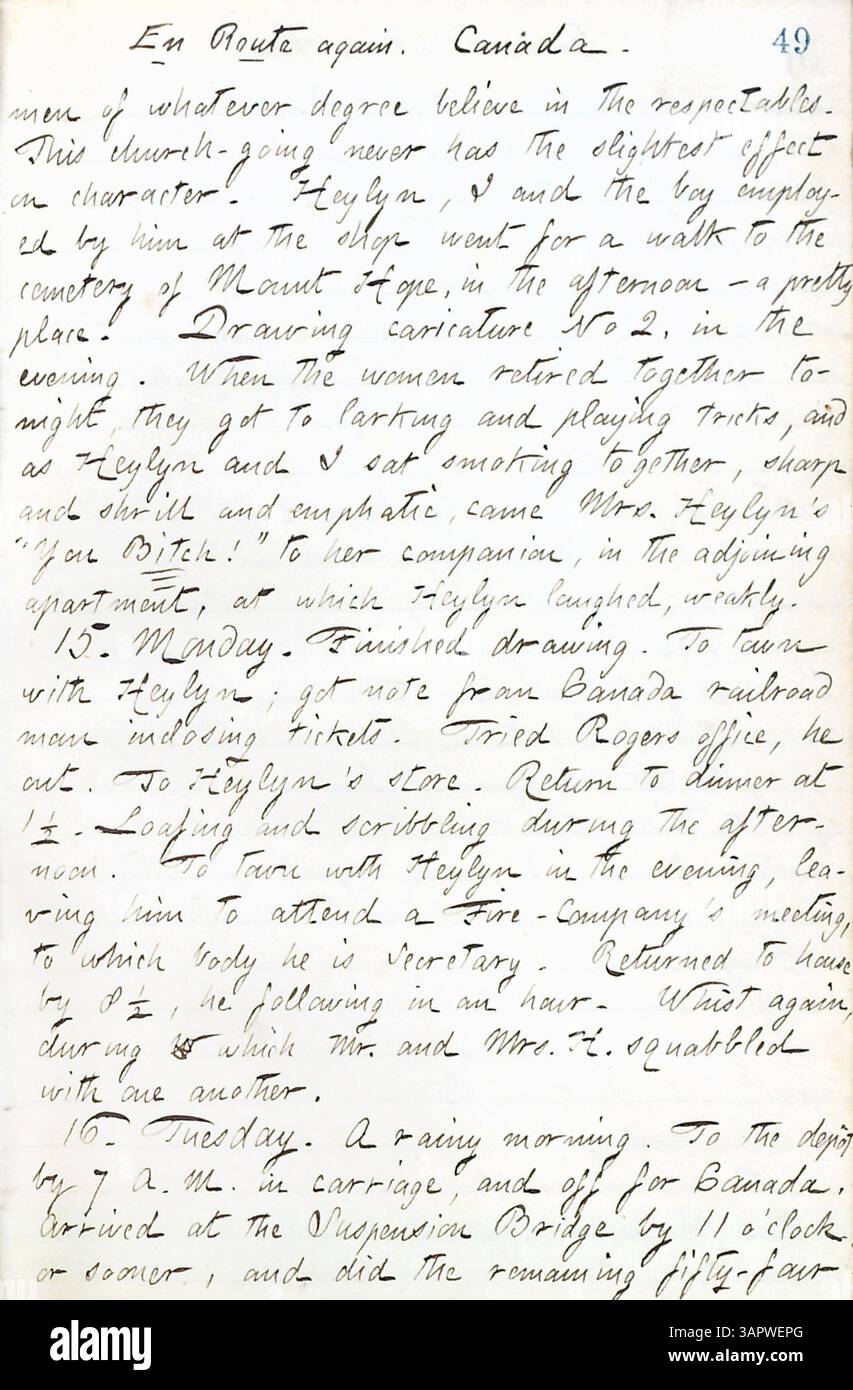 En Route again. Canada.
49
men of whatever degree believe in the respectables.
This church-going never has the slightest effect
on character. Heylyn, I and the boy employ-
ed by him at the shop went for a walk to the
cemetery of Mount Hope, in the afternoon - a pretty
place. Drawing caricature No 2. in the
evening. When the women retired together to-
night, they got to larking and playing tricks, and
as Heylyn and I sat smoking together, sharp
and shrill and emphatic, came Mrs. Heylyn's
"You Bitch!" to her companion, in the adjoining
apartment, at which Heylyn laughed, weakly.
15. Monday. Finished drawing. To town
with Heylyn; got note from Canada railroad
man inclosing tickets. Tried Rogers office, he
out. To Heylyn's store. Return to dinner at
1 1/2. Loafing and scribbling during the after-
noon. To town with Heylyn in the evening, lea-
ving him to attend a Fire-Company's meeting,
to which body he is Secretary. Returned to house
by 8 1/2, he following in an hour. Whist again,
during which Mr. and Mrs. H. squabbled
with one another.
16. Tuesday. A rainy morning. To the depot
by 7 A.M. in carriage, and off for Canada.
Arrived at the Suspension Bridge by 11 o'clock
or sooner, and did the remaining fifty-four
alamy
Image ID: 3APWEPG
www.alamy.com